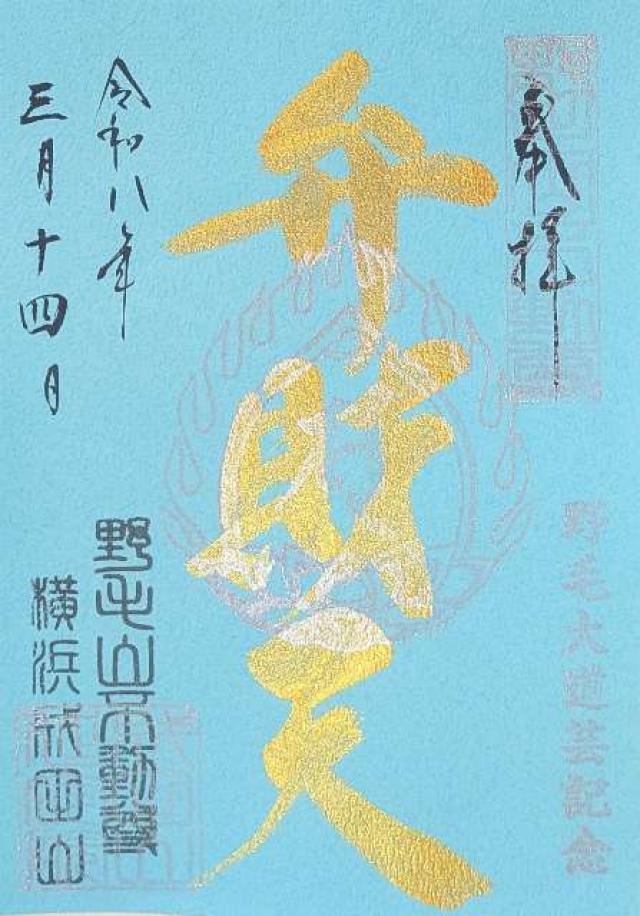 奉拝
野毛大道芸記念
弁財天
令和八年
三月十四日
野毛山不動尊
横浜成田山